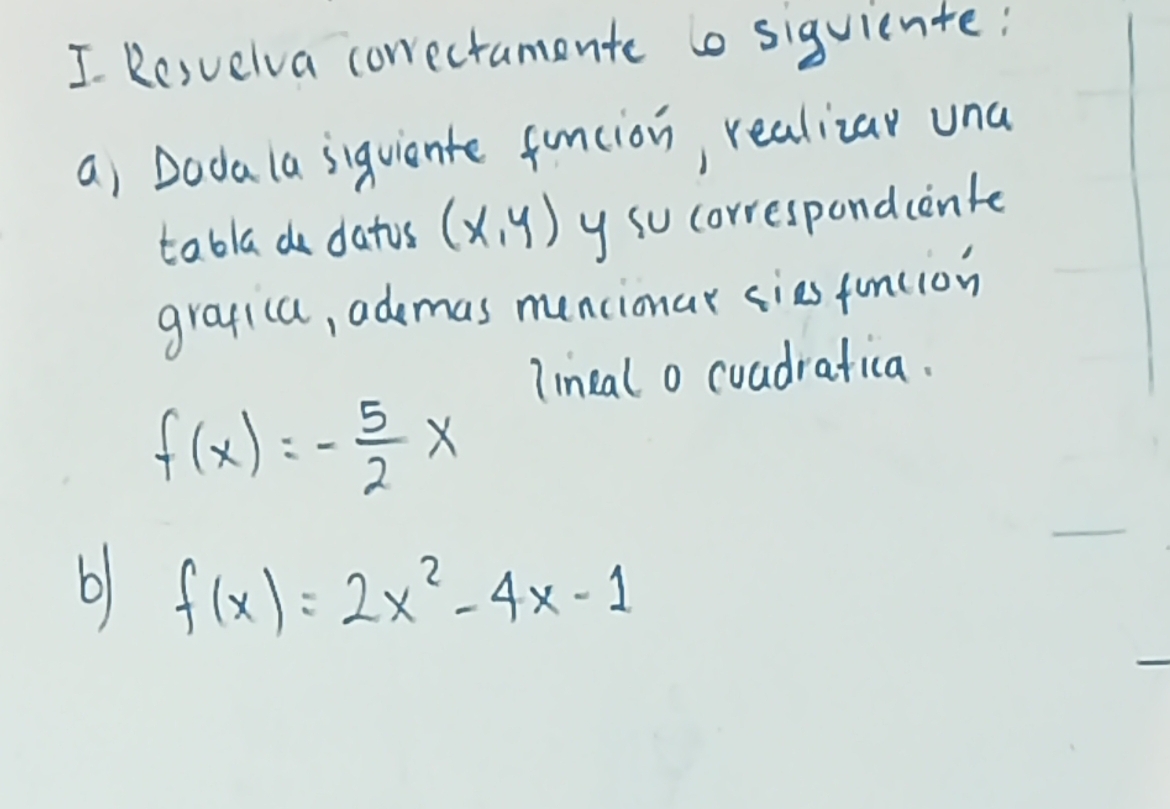 I- Resuelva correctamente lo siguiente:
a) Dada la siguiente función, realizar una
tabla de datos (x,y) y su correspondiente
grafica, ademas mencionar si es función
lineal o cuadratica.
f(x) = - 5/2 x
b) f(x) = 2x² - 4x - 1